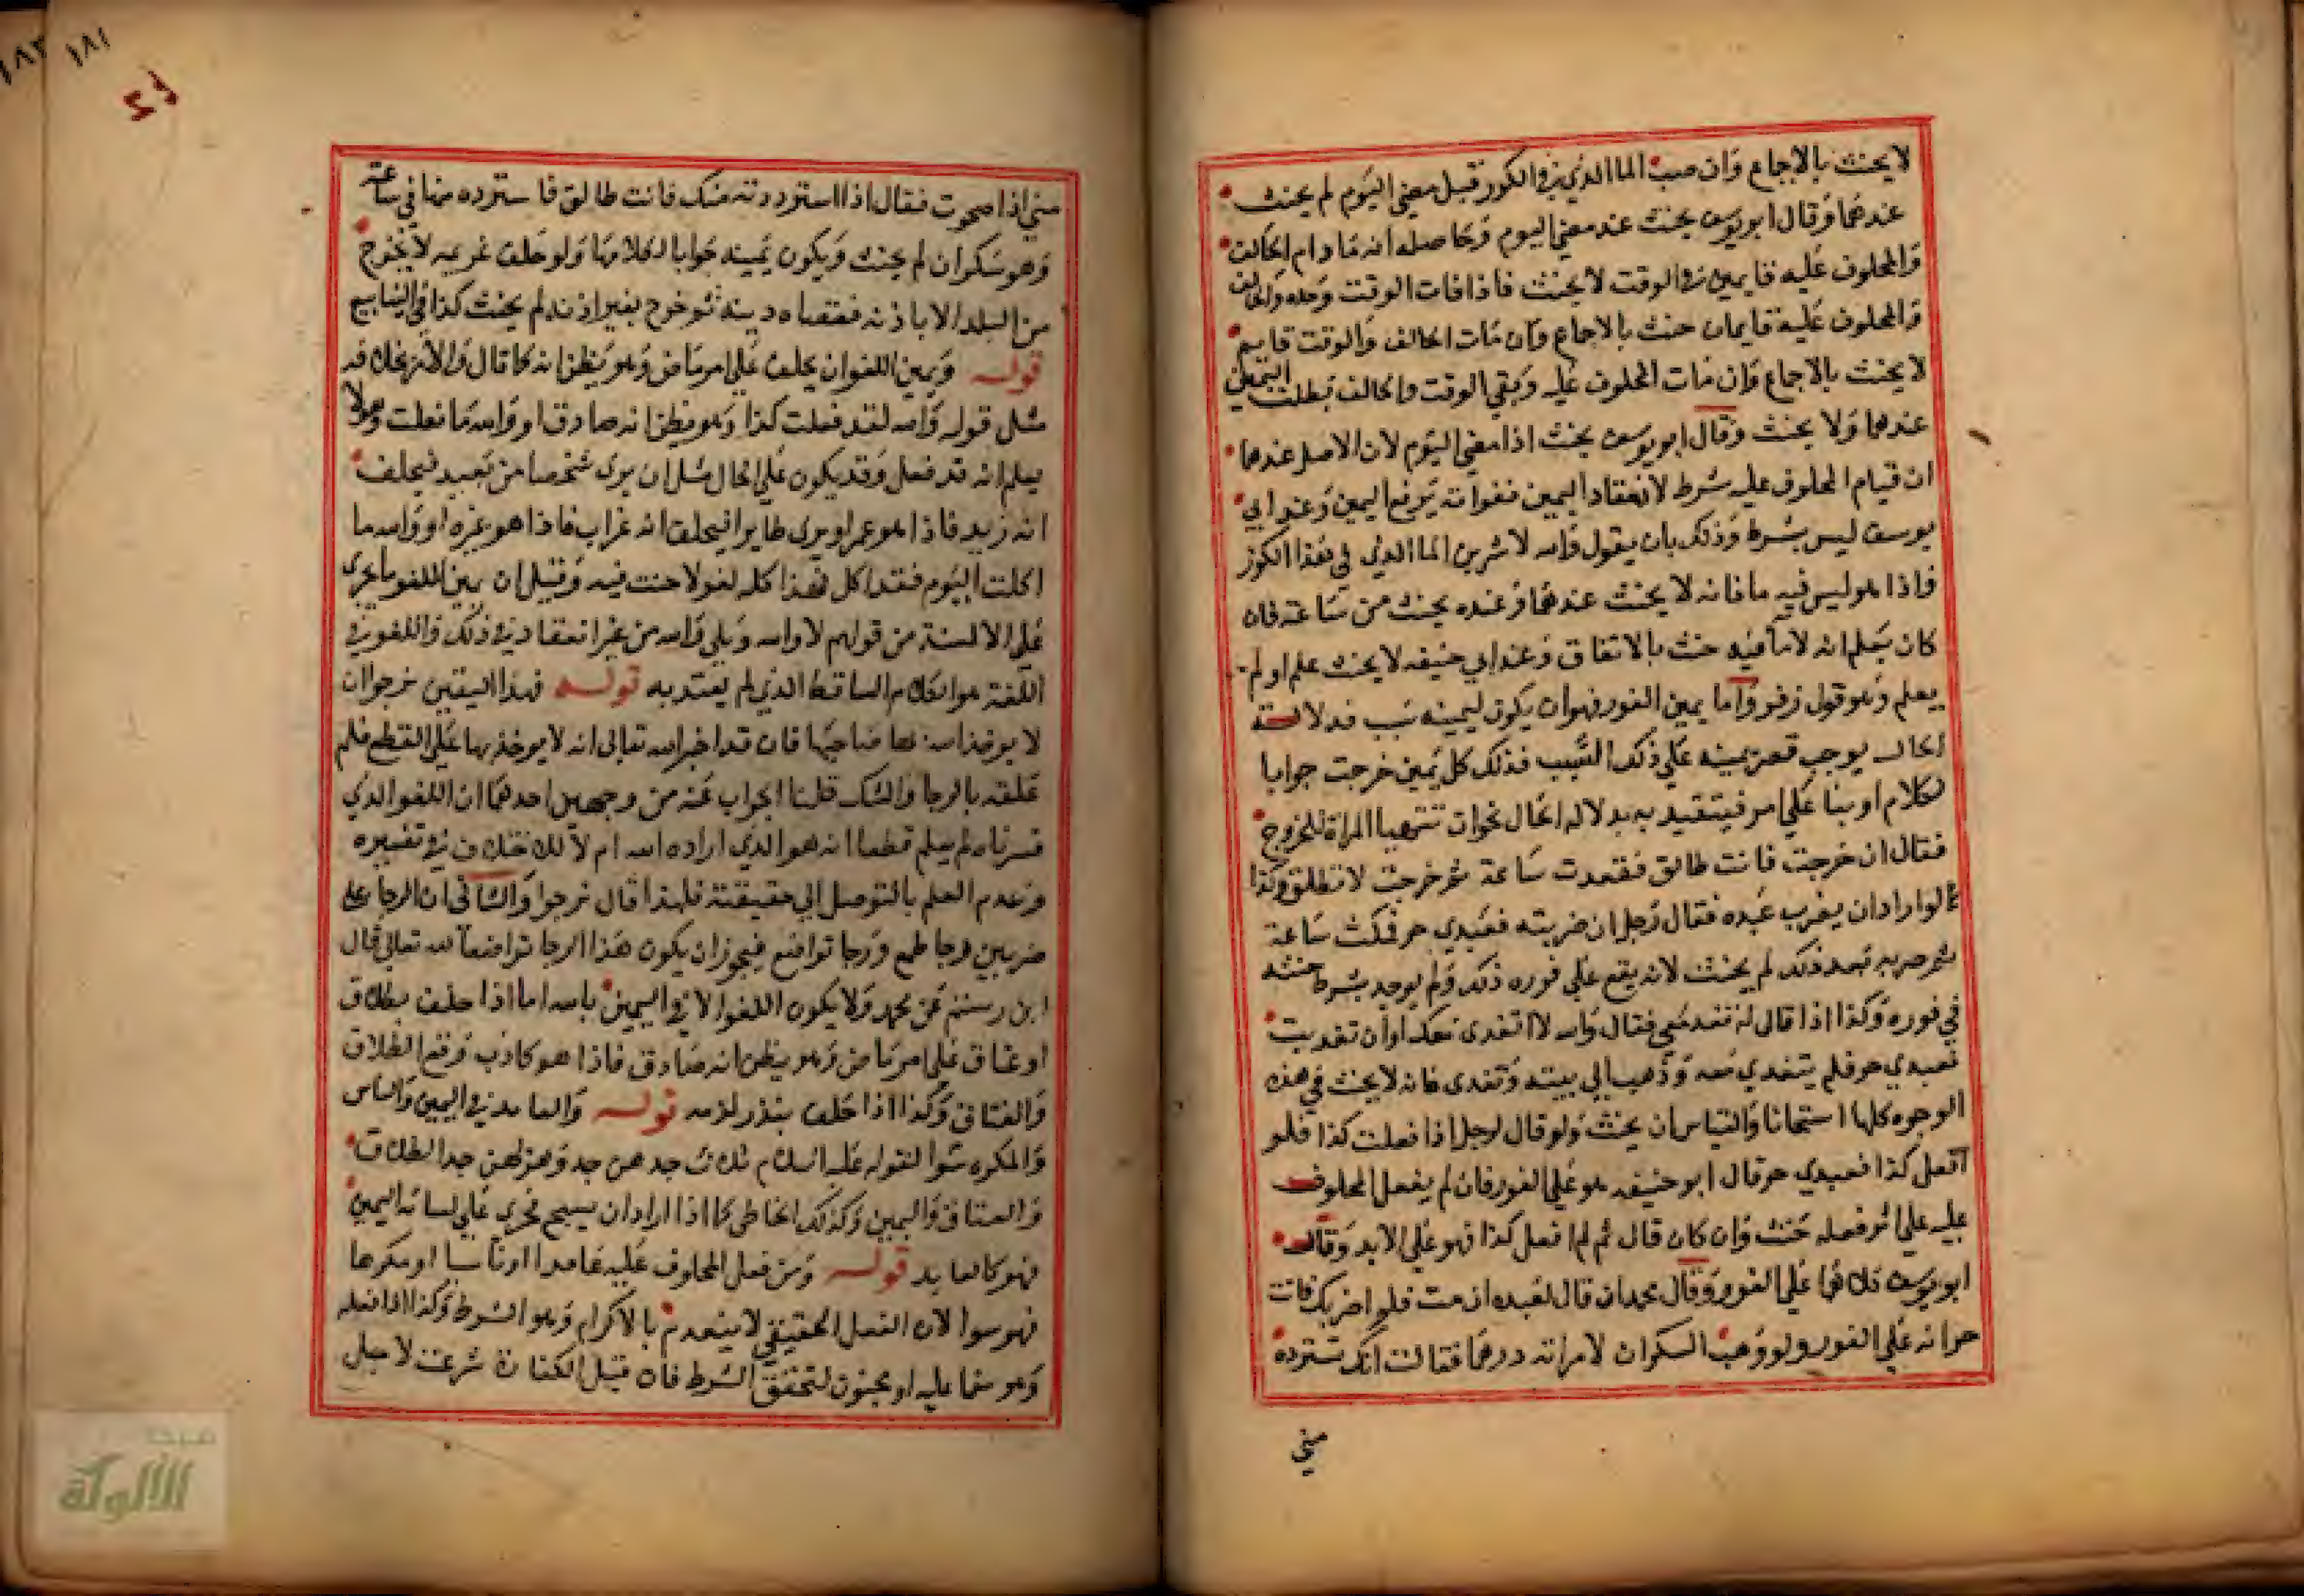 لا يحنث بالاجماع وان صب الما الذي في الكوز قبل مضي اليوم لم يحنث
عندهما وقال ابو يوسف يحنث عند مضي اليوم وحاصله انه ما دام الحالف
والمحلوف عليه قايمين في الوقت لا يحنث فاذا فات الوقت وحده والحالف
والمحلوف عليه قايمان حنث بالاجماع وان مات الحالف والوقت قايم
لا يحنث بالاجماع وان مات المحلوف عليه وبقي الوقت والحالف بطلت اليمين
عندهما ولا يحنث وقال ابو يوسف يحنث اذا مضي اليوم لان الاصل عندهما
ان قيام المحلوف عليه شرط لانعقاد اليمين ففواته يرفع اليمين وعند ابي
يوسف ليس بشرط وذلك بان يقول والله لاشربن الما الذي في هذا الكوز
فاذا هو ليس فيه ما فانه لا يحنث عندهما وعنده يحنث من ساعته فان
كان يعلم انه لا ما فيه حنث بالاتفاق وعند ابي حنيفه لا يحنث علم او لم
يعلم وهو قول زفر واما يمين الفور فهو ان يكون ليمينه سبب فدلالة
الحال يوجب قصر يمينه علي ذلك السبب فذلك كل يمين خرجت جوابا
لكلام او بنا علي امر فيتقيد به بدلالة الحال نحو ان تتهيا المراة للخروج
فقال ان خرجت فانت طالق فقعدت ساعة ثم خرجت لا تطلق وكذا
لو اراد ان يضرب عبده فقال رجل ان ضربته فعبدي حر فمكث ساعة
ثم ضربه بعد ذلك لم يحنث لانه يقع علي فوره ذلك ولم يوجد شرط حنثه
في فوره وكذا اذا قال له تغد معي فقال والله لا اتغدى معك او ان تغديت
فعبدي حر فلم يتغدي معه وذهب الي بيته وتغدى فانه لا يحنث في هذه
الوجوه كلها استحسانا والقياس ان يحنث ولو قال لرجل اذا فعلت كذا فلم
افعل كذا فعبدي حر قال ابو حنيفه هو علي الفور فان لم يفعل المحلوف
عليه علي اثر فعله حنث وان كان قال ثم لم افعل كذا فهو علي الابد وقال
ابو يوسف علي الفور وقال محمد ان قال لعبده ان مت فلم اضربك فانت
حر انه علي الفور ولو وهب السكران لامراته درهما فقالت انك تسترده
مني
مني اذا صحوت فقال اذا استرددته منك فانت طالق فاسترده منها في ساعته
وهو سكران لم يحنث ويكون يمينه جوابا لكلامها ولو حلف غريمه لا يخرج
من البلد الا باذنه فقضاه دينه ثم خرج بغير اذنه لم يحنث كذا في الينابيع
قوله ويمين اللغو ان يحلف علي امر ماض وهو يظن انه كما قال والامر بخلافه
مثل قوله والله لقد فعلت كذا وهو يظن انه صادق او والله ما فعلت وهو لا
يعلم انه قد فعل وقد يكون علي الحال مثل ان يرى شخصا من بعيد فيحلف
انه زيد فاذا هو عمرا ويرى طايرا فيحلف انه غراب فاذا هو غيره او والله ما
اكلت اليوم فقد اكل فهذا كله لغو لا حنث فيه وقيل ان يمين اللغو ما يجري
علي الالسنة من قولهم لا والله وبلي والله من غير انعقاد في ذلك واللغو في
اللغة هو الكلام الساقط الذي لم يعتد به قوله فهذا اليمين نرجوا ان
لا يواخذ الله بها صاحبها فان قد اخبر الله تعالى انه لا يوخذ بها علي القطع فلم
علقه بالرجا والشك قلنا الجواب عنه من وجهين احدهما ان اللغو الذي
فسرناه لم يعلم قطعا انه هو الذي اراده الله ام لا للاختلاف في تفسيره
وعدم العلم بالتوصل الي حقيقته فلهذا قال نرجوا والثاني ان الرجا علي
ضربين رجا طمع ورجا تواضع فيجوز ان يكون هذا الرجا تواضعا لله تعالي قال
ابن رستم عن محمد ولا يكون اللغو الا في اليمين بالله اما اذا حلف بطلاق
او عتاق علي امر ماض وهو يظن انه صادق فاذا هو كاذب وقع الطلاق
والعتاق وكذا اذا حلف بنذر لزمه قوله والعامد في اليمين والناس
والمكره سوا لقوله عليه السلام ثلاث جدهن جد وهزلهن جد الطلاق
والعتاق واليمين وكذلك الخاطي كما اذا اراد ان يسبح فجرى علي لسانه اليمين
فهو كالعامد قوله ومن فعل المحلوف عليه عامدا او ناسيا او مكرها
فهو سوا لان الفعل الحقيقي لا ينعدم بالاكراه وهو الشرط وكذا اذا فعله
وهو مغما عليه او مجنون لتحقق الشرط فان قيل الكفارة شرعت لاجل
١٨١
١٨٢